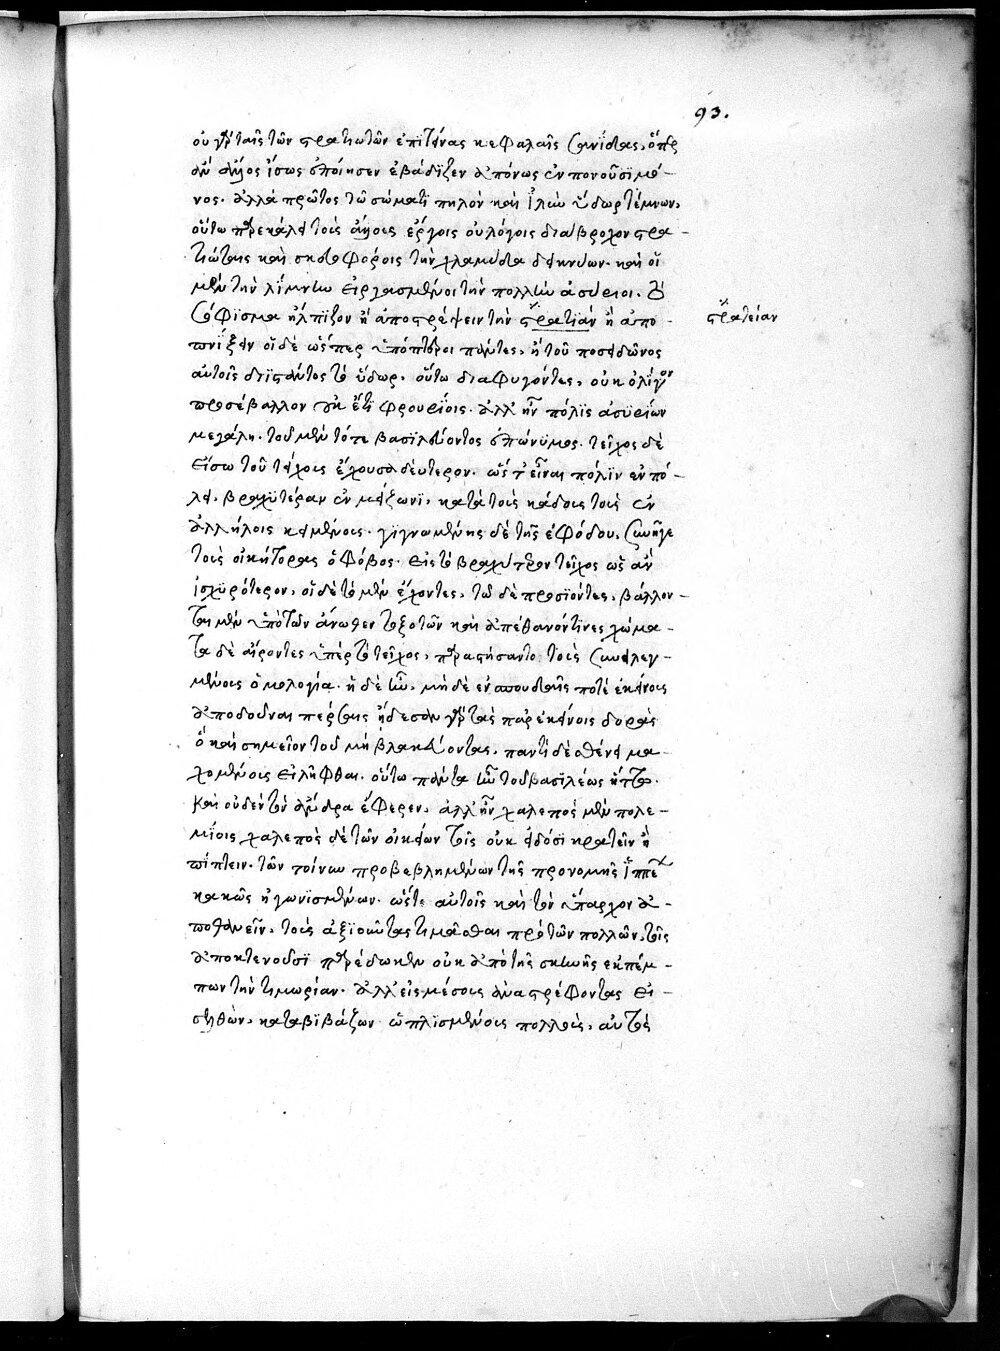 93.
οὐ γὰρ ταῖς τῶν στρατιωτῶν ἐπιτείνας κεφαλαῖς σανίδας, ὅπερ
ἂν ἄλλος ἴσως ἐποίησεν ἐβάδϊζεν ἀπόνως ἐν πονοῦσϊ μό-
νος. ἀλλὰ πρῶτος τῶ σώματι πηλὸν καὶ ἰλὺν ὕδωρ τέμνων,
οὕτω παρεκάλει τοῖς ἄλλοις ἔργοις οὐ λόγοις διάβροχον στρα-
τιώταις καὶ σκευοφόροις τὴν χλαμύδα δεικνύων. καὶ οἱ
μὲν τὴν λίμνην εἰργασμένοι τὴν πολλὴν ἀσύριοι. τὸ
σόφϊσμα ἤλπϊζον ἢ ἀποστρέψειν τὴν στρατϊὰν ἢ ἀπο-
πνίξειν οἱ δὲ ὥσπερ ὑπόπτεροι πάντες, ἢ τοῦ ποσειδῶνος
στρατείαν
αὐτοῖς διϊστάντος τὸ ὕδωρ, οὕτω διαφυγόντες, οὐκ ὀλίγον
προσέβαλλον οὐκ ἔτι φρουρίοις. ἀλλ' ἦν πόλϊς ἀσϋρίων
μεγάλη. τοῦ μὲν τότε βασϊλεύοντος ἐπώνυμος. τεῖχος δὲ
εἴσω τοῦ τείχους ἔχουσα δεύτερον. ὥστ' εἶναι πόλϊν ἐν πό-
λει, βραχυτέραν ἐν μείζωνϊ, κατὰ τοὺς κάδους τοὺς ἐν
ἀλλήλοις κειμένους. γϊγνωμένης δὲ τῆς ἐφόδου, συνῆγε
τοὺς οἰκήτορας ὁ φόβος. εἰς τὸ βραχύτερον τεῖχος ὡς ἂν
ἰσχϋρότερον, οἱ δὲ τὸ μὲν ἔχοντες, τῶ δὲ προσϊόντες, βάλλον-
ται μὲν ὑπὸ τῶν ἄνωθεν τοξοτῶν καὶ ἀπέθανόν τϊνες χώμα-
τα δὲ αἴροντες ὑπὲρ τὸ τεῖχος, παραστήσαντο τοὺς συνειλεγ-
μένους ὁμολογία. ἡ δὲ ἦν, μὴ δὲ ἐν σπουδαῖς ποτὲ ἐκείνους
ἀποδοῦναι πέρσαις ᾔδεσαν γὰρ τὰς παρ' ἐκείνοις δορὰς
ὃ καὶ σημεῖον τοῦ μὴ βλακεύοντας, παντὶ δὲ σθένει μα-
χομένους εἰλῆφθαι. οὕτω πάντα ἦν τοῦ βασϊλέως ἥττω.
καὶ οὐδεὶς τὸν ἄνδρα ἔφερεν, ἀλλ' ἦν χαλεπὸς μὲν πολε-
μίοις χαλεπὸς δὲ τῶν οἰκείων τοῖς οὐκ εἰδόσϊ κρατεῖν ἢ
πίπτειν. τῶν τοίνυν προβεβλημένων τῆς προνομῆς ἱππέων
κακῶς ἠγωνϊσμένων. ὥστε αὐτοῖς καὶ τὸν ὕπαρχον ἀ-
ποθανεῖν, τοὺς ἀξϊοῦντας τιμᾶσθαι πρὸ τῶν πολλῶν, τοῖς
ἀποκτενοῦσϊ παρέδωκεν οὐκ ἀπὸ τῆς σκηνῆς ἐκπέμ-
πων τὴν τιμωρίαν. ἀλλ' εἰς μέσους ἀναστρέφοντας εἰ-
σελθὼν, καταβϊβάζων ὡπλϊσμένους πολλοὺς, αὐτὸς